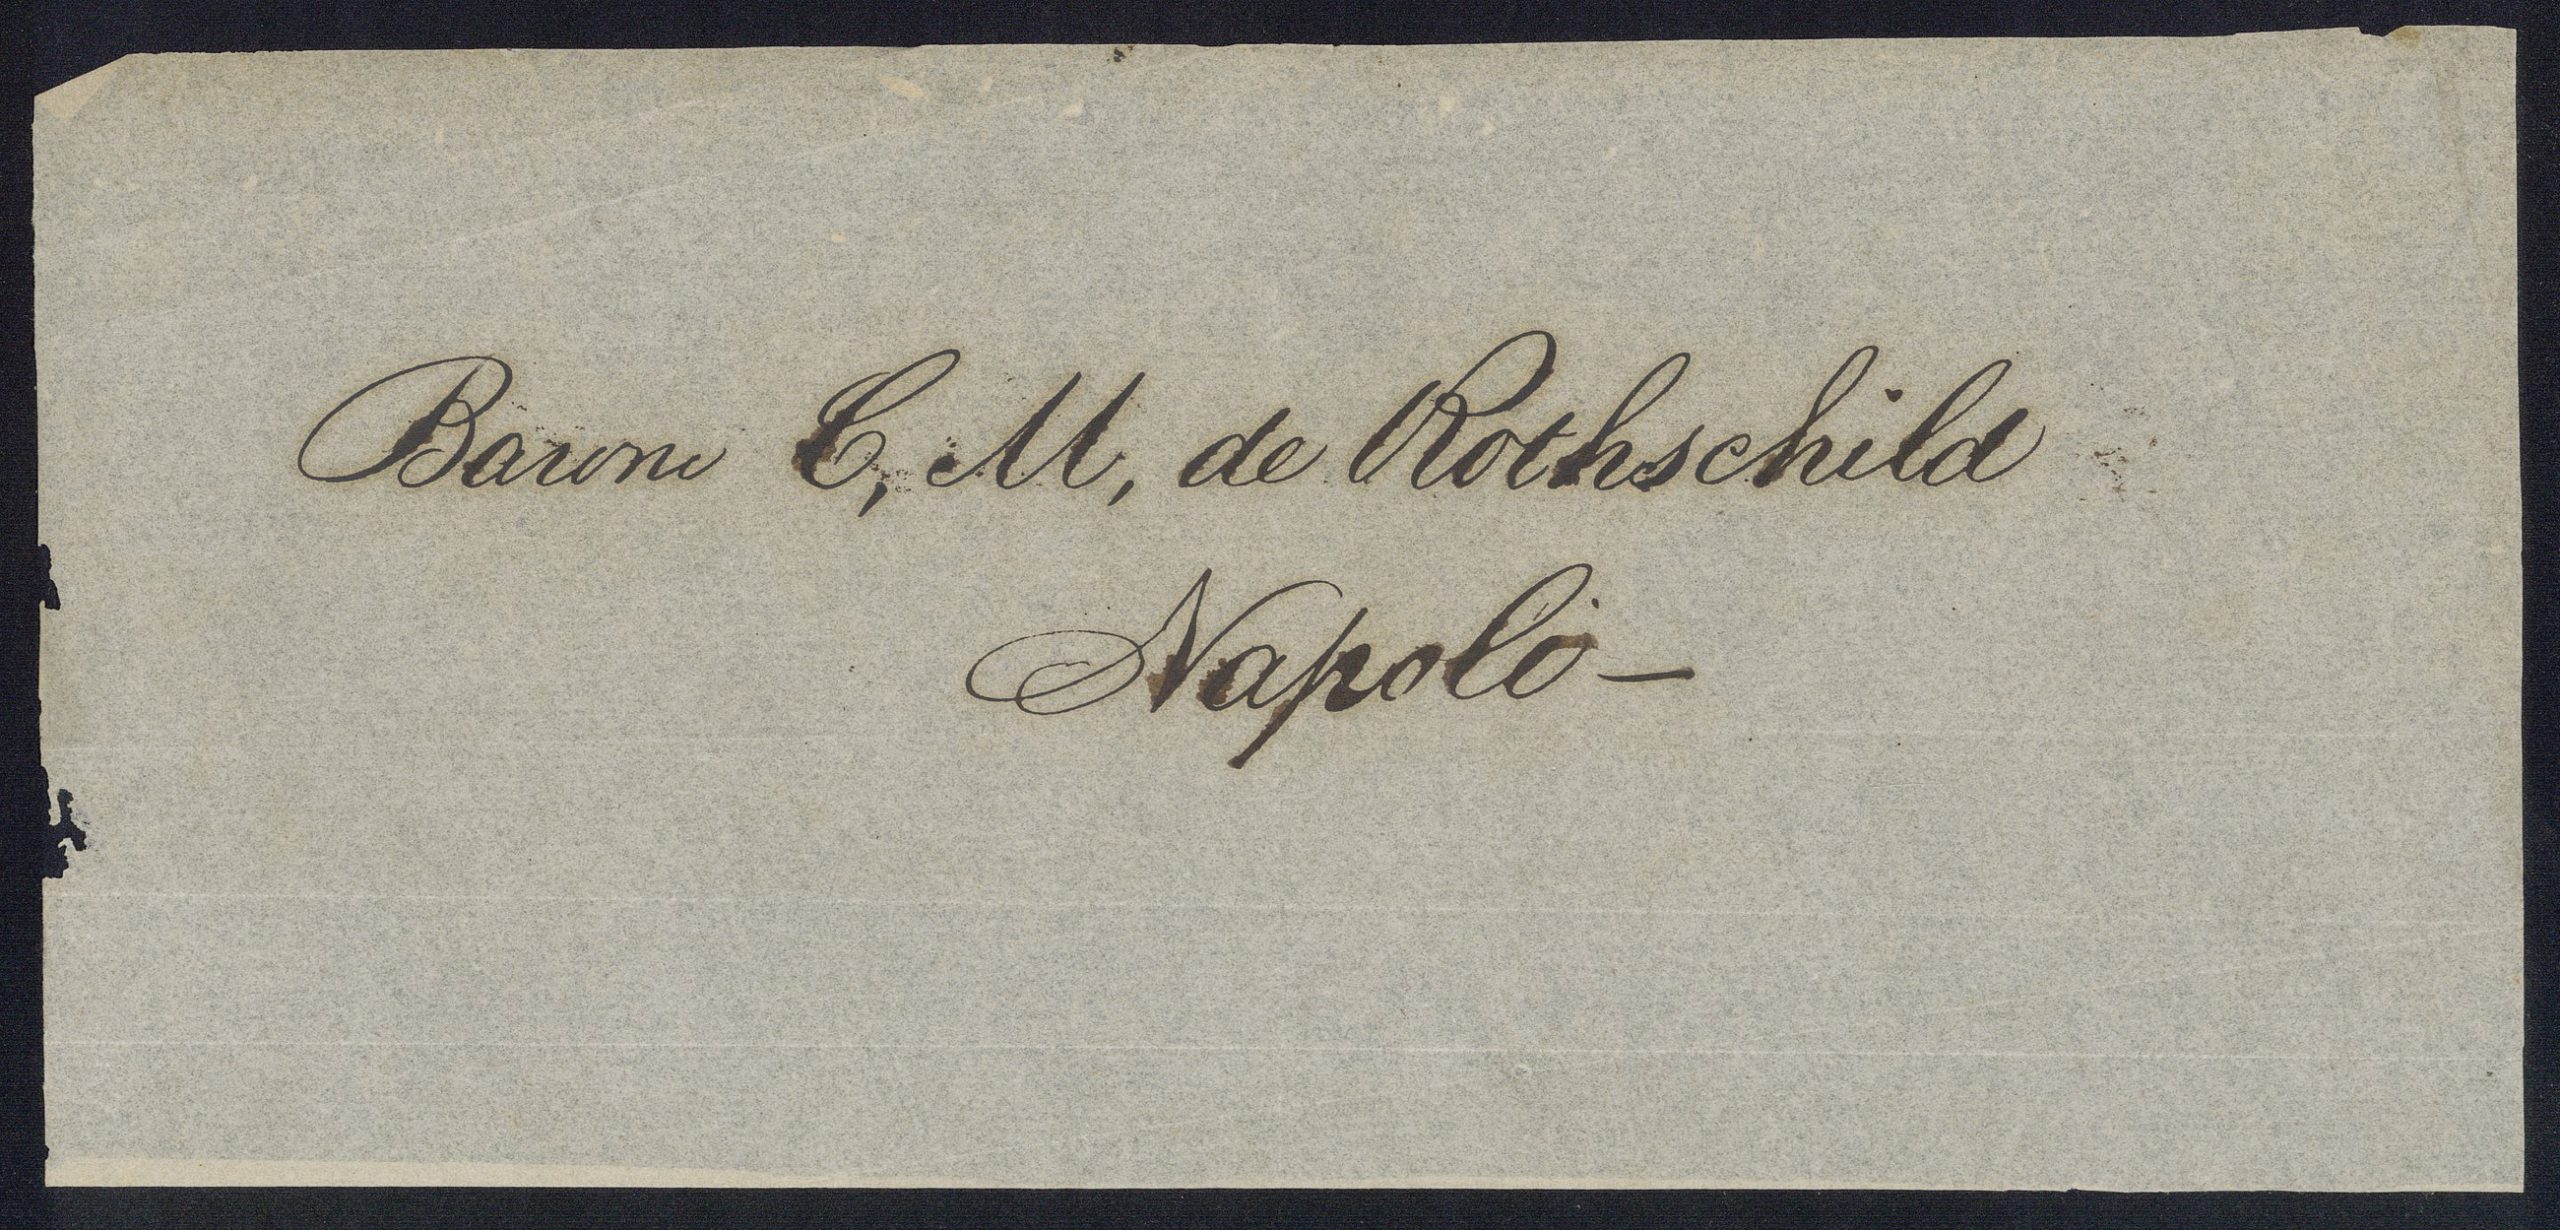 Barone C, M, de Rothschild
Napoli —